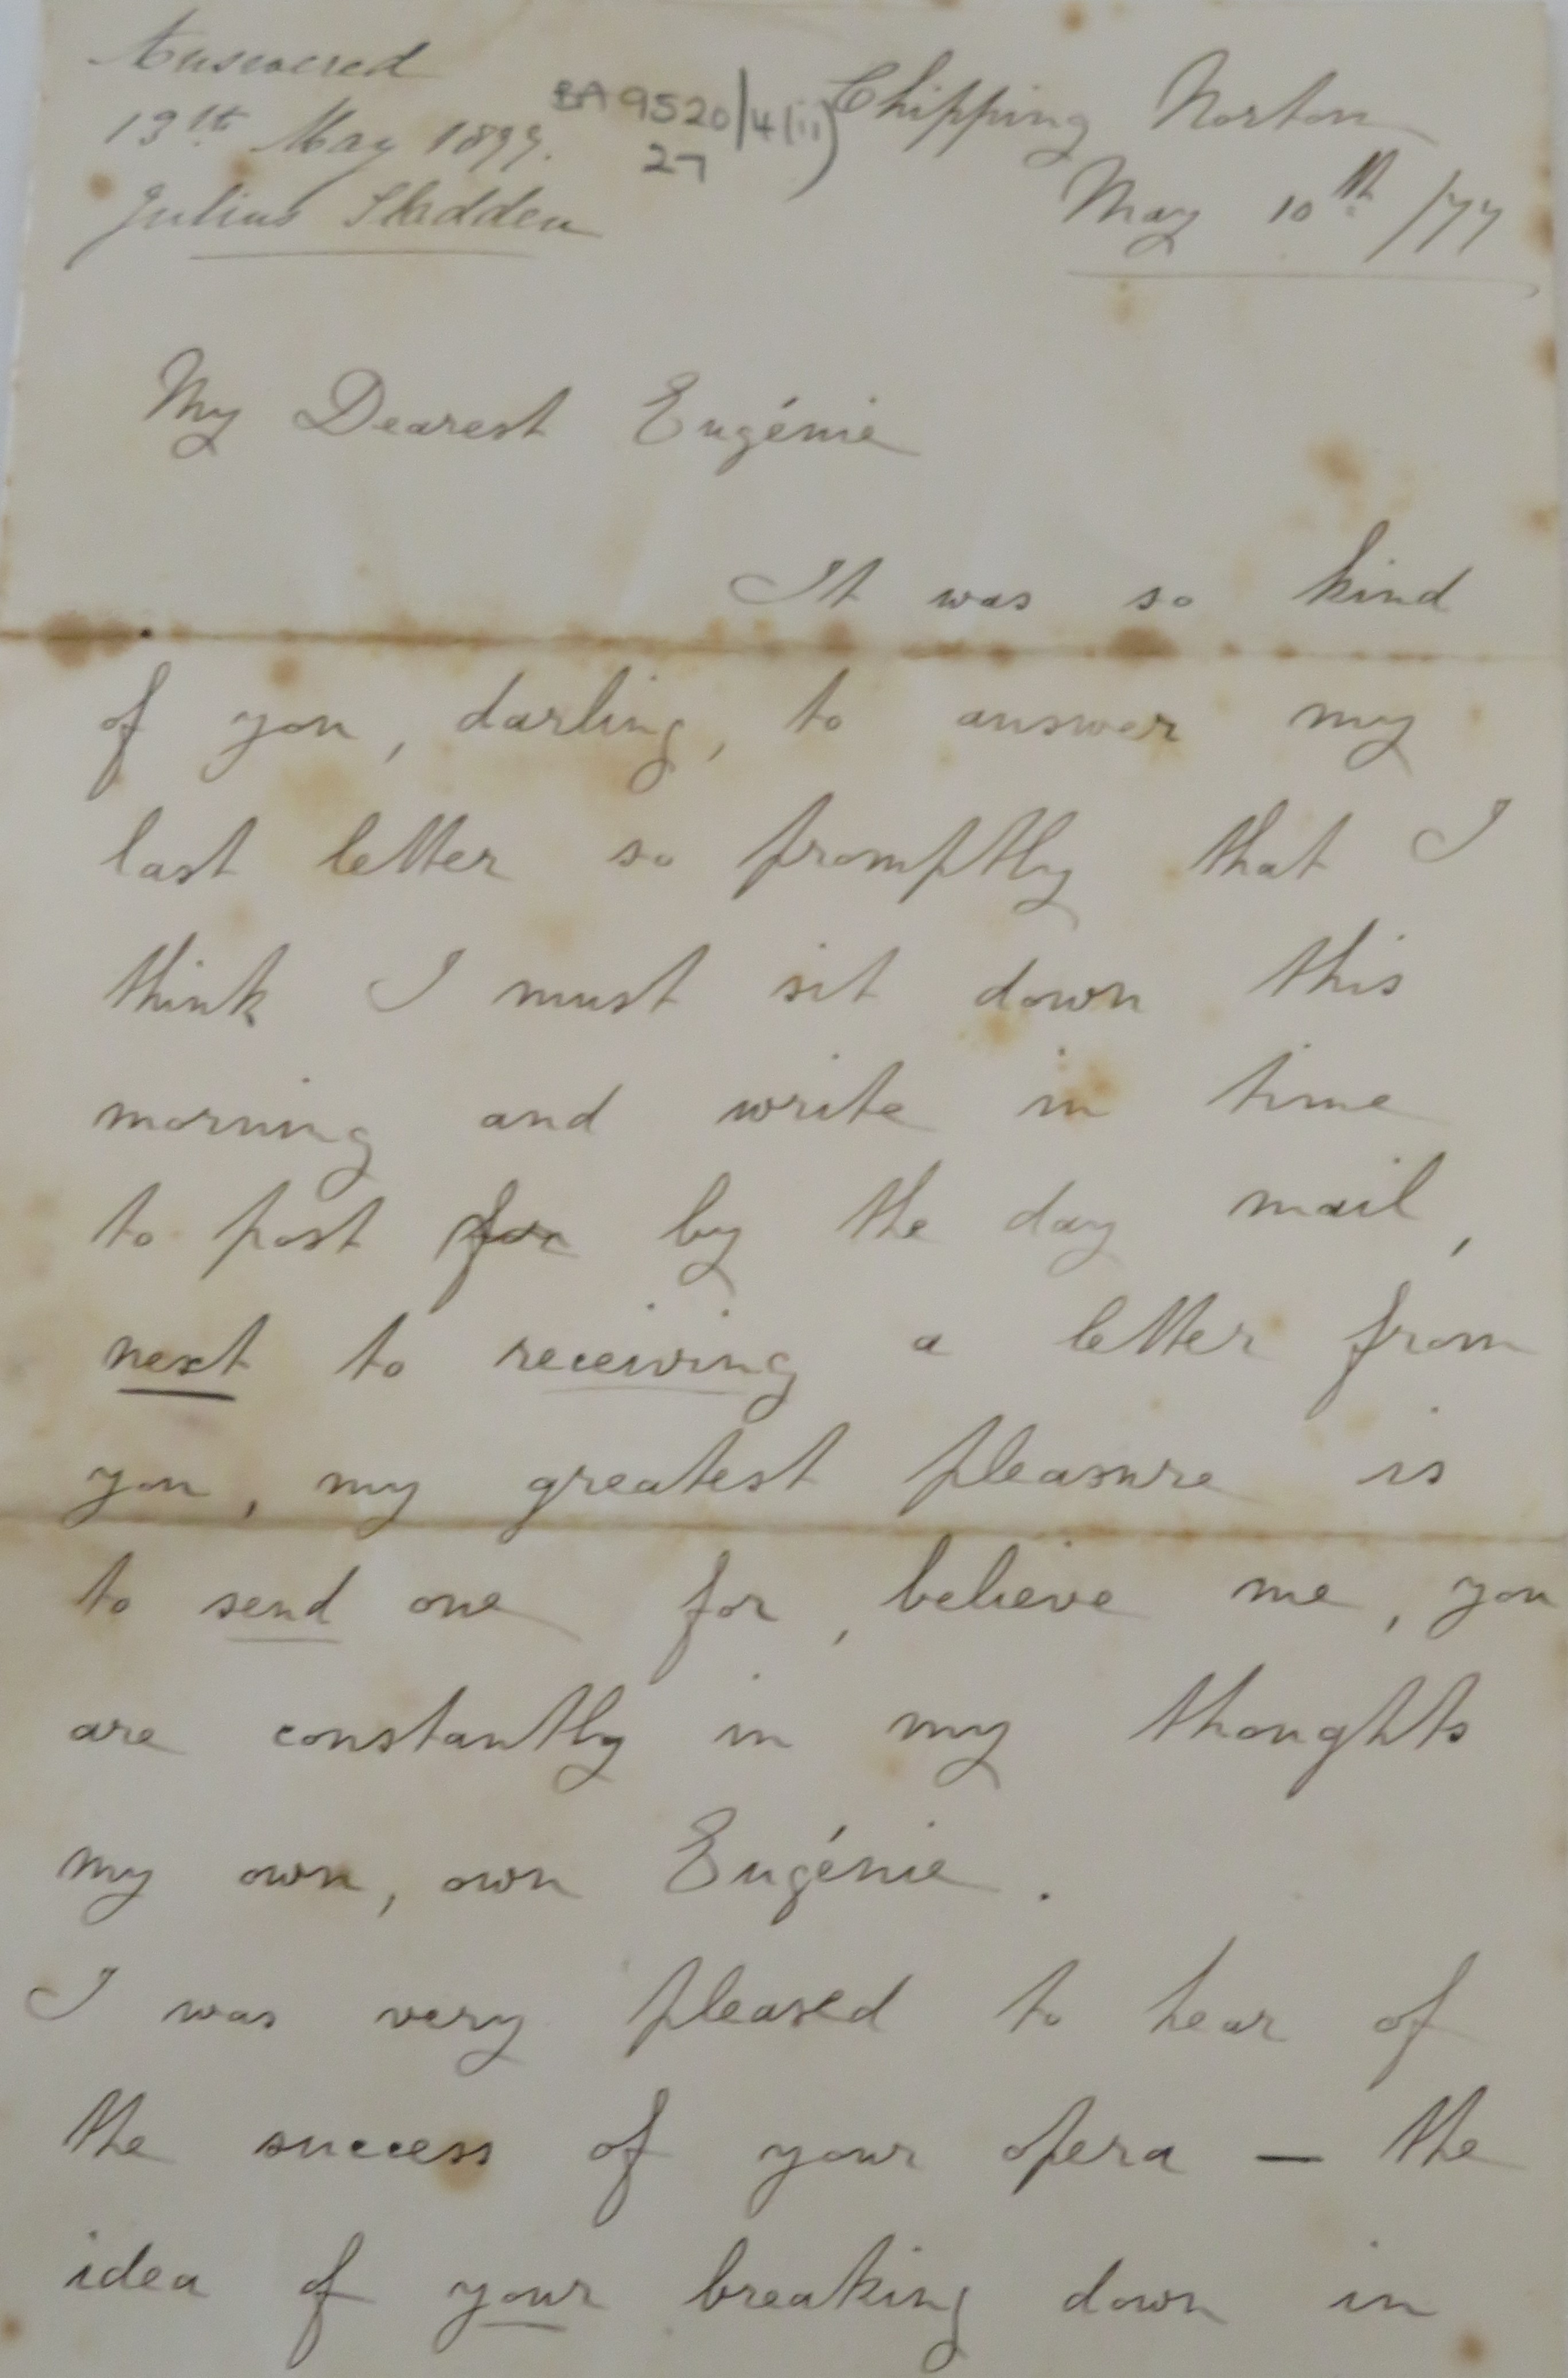 Answered
13th May 1877.
Julius Sladden
BA 9520/4(ii)
27
Chipping Norton
May 10th /77
My Dearest Eugénie
It was so kind
of you, darling, to answer my
last letter so promptly that I
think I must sit down this
morning and write in time
to post for by the day mail,
next to receiving a letter from
you, my greatest pleasure is
to send one for, believe me, you
are constantly in my thoughts
my own, own Eugénie.
I was very pleased to hear of
the success of your opera — the
idea of your breaking down in